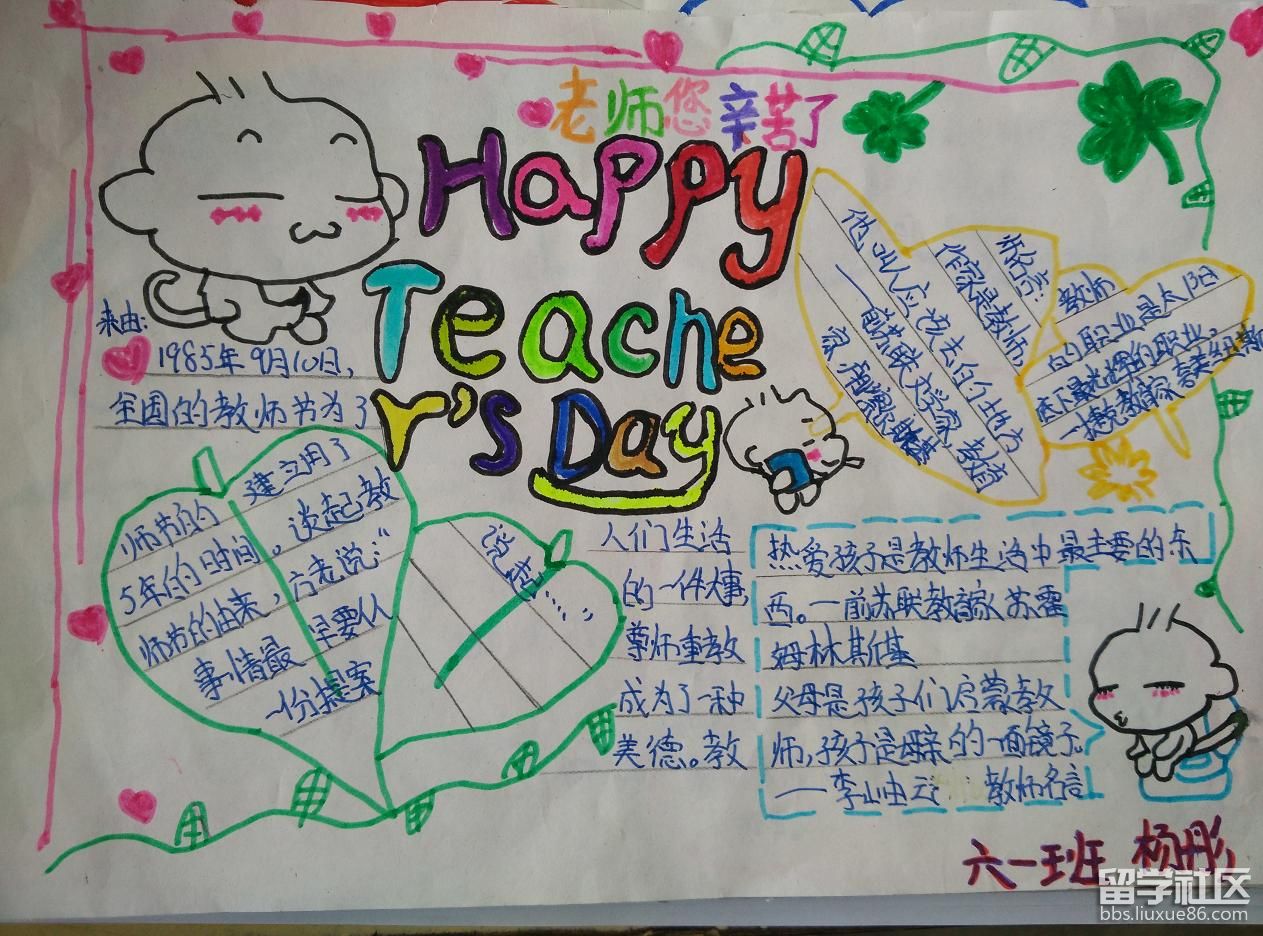 老师您辛苦了
Happy
Teache
r's Day
来由:
1985年9月10日,
全国的教师节为了
人们生活
的一件大事,
尊师重教
成为了一种
美德。教
师节的 建立用了
5年的时间。谈起教
师节的由来,方老说:“
事情最早要从
一份提案
说起……”
师名言:
作家是教师,
他叫人应该去的地方
——前苏联文学家 教育
家
教师
的职业是太阳
底下最光辉的职业。
热爱孩子是教师生活中最主要的东
西。——前苏联教育家 苏霍
姆林斯基
父母是孩子们启蒙教
师,孩子是母亲的一面镜子。
教师名言
六一班 杨彤
留学社区
bbs.liuxue86.com